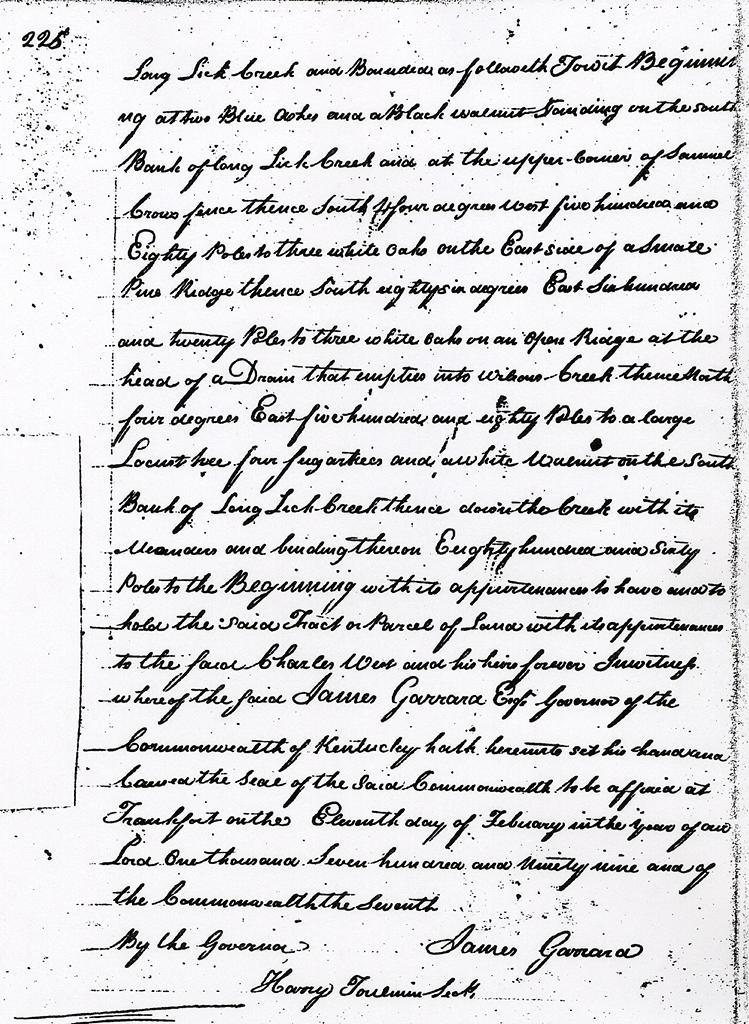 225
Long Lick Creek and Bounded as followeth Towit Beginni
ng at two Blue Ashes and a Black walnut Standing on the south
Bank of long Lick Creek and at the upper Corner of Samuel
Crows fence thence South four degrees West five hundred and
Eighty Poles to three white oaks on the East side of a Small
Pine Ridge thence South eighty six degrees East Six hundred
and twenty Poles to three white oaks on an open Ridge at the
head of a Drain that empties into Wilsons Creek thence North
four degrees East five hundred and eighty Poles to a large
Locust tree four sugartrees and a white Walnut on the South
Bank of Long Lick Creek thence down the Creek with its
Meanders and binding thereon Eighty hundred and Sixty
Poles to the Beginning with its appurtenances to have and to
hold the said Tract or Parcel of Land with its appurtenances
to the said Charles West and his heirs forever In witness
whereof the said James Garrard Esqr Governor of the
Commonwealth of Kentucky hath hereunto set his hand and
Caused the Seal of the Said Commonwealth to be affixed at
Frankfort on the Eleventh day of Febuary in the year of our
Lord One thousand Seven hundred and Ninety nine and of
the Commonwealth the Seventh
By the Governor James Garrard
Harry Toulmin Secty